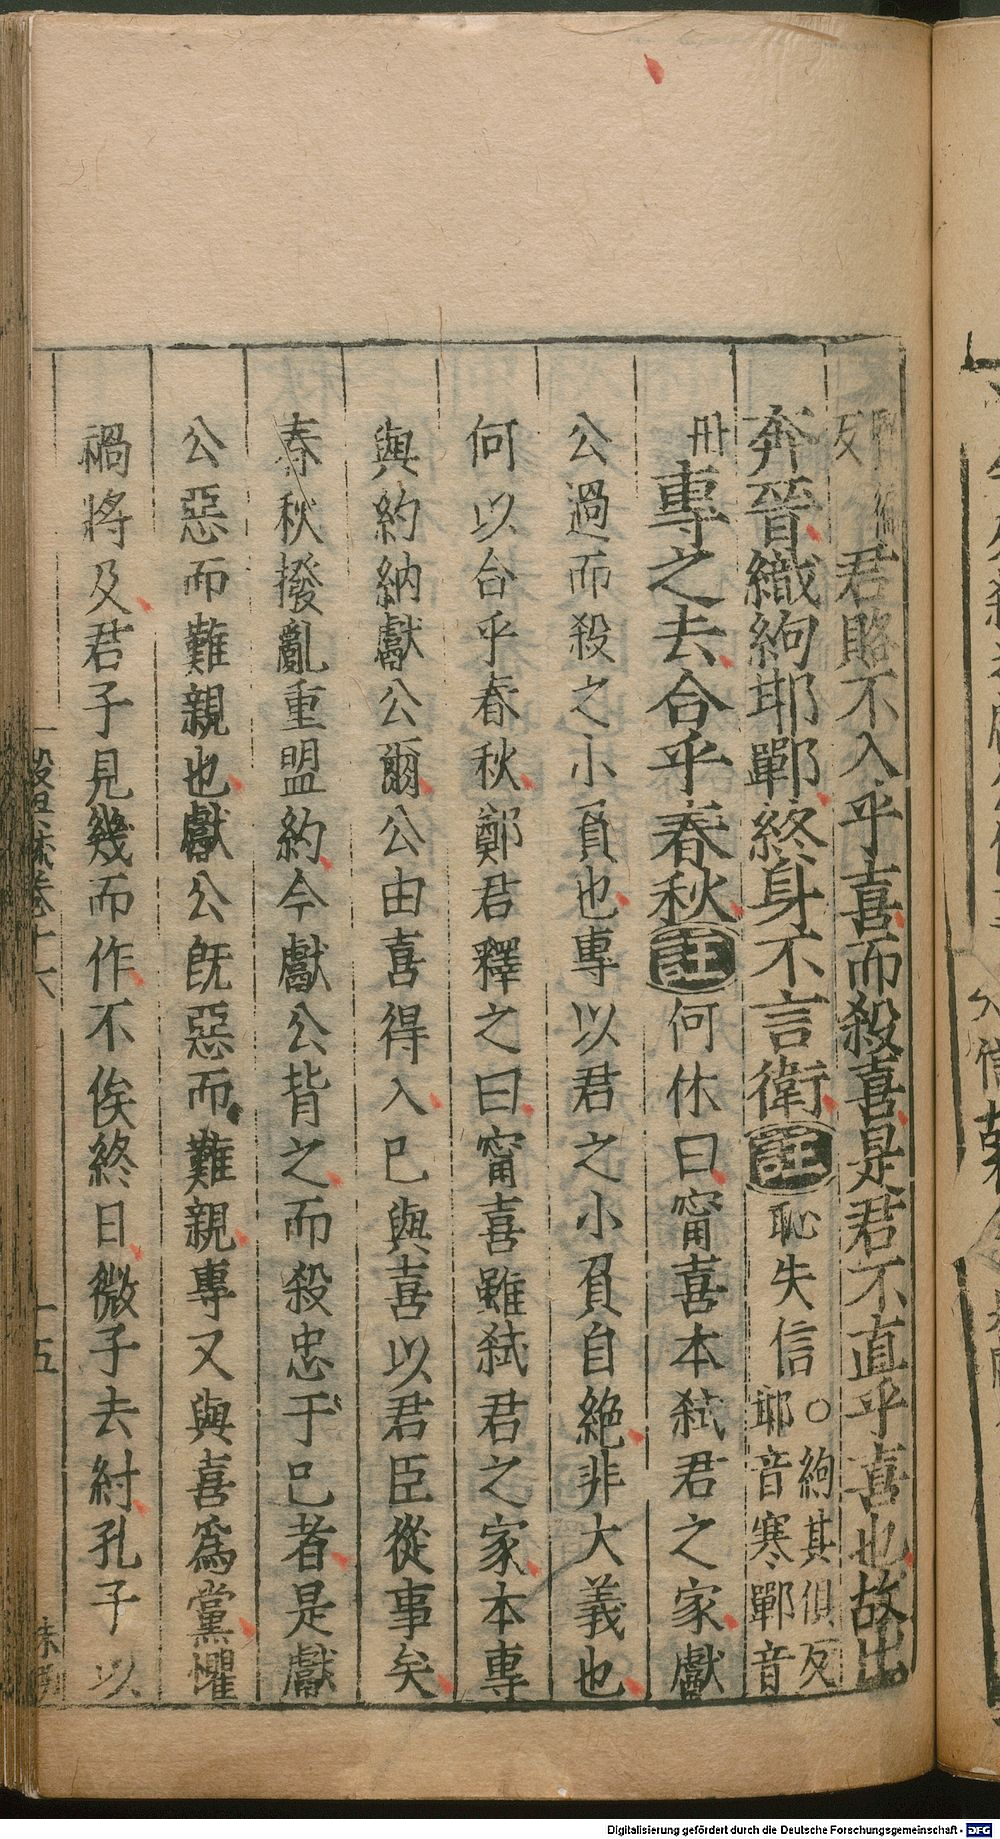 反君賂不入乎喜而殺喜是君不直乎喜也故出
奔晉織絇邯鄲終身不言衛註恥失信○絇其俱反邯音寒鄲音
丹專之去合乎春秋註何休曰甯喜本弑君之家獻
公過而殺之小負也專以君之小負自絕非大義也
何以合乎春秋鄭君釋之曰甯喜雖弑君之家本專
與約納獻公爾公由喜得入已與喜以君臣從事矣
春秋撥亂重盟約今獻公背之而殺忠于已者是獻
公惡而難親也獻公既惡而難親專又與喜爲黨懼
禍將及君子見幾而作不俟終日微子去紂孔子以
十六
十五
Digitalisierung gefördert durch die Deutsche Forschungsgemeinschaft - DFG